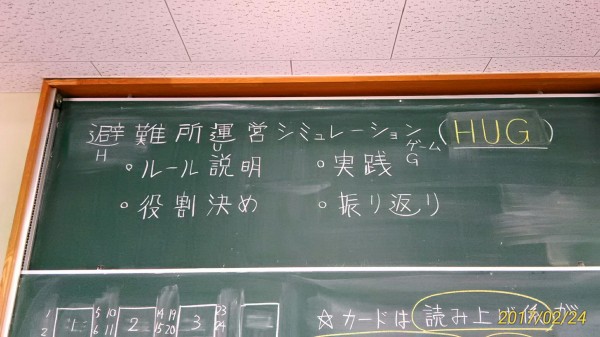 避難所運営シミュレーションゲーム(HUG)
H U G
・ルール説明 ・実践
・役割決め ・振り返り
1 2 1 5 6 10 11 2 14 15 19 20 3 23 24
☆カードは読み上げ後が
2017/02/24